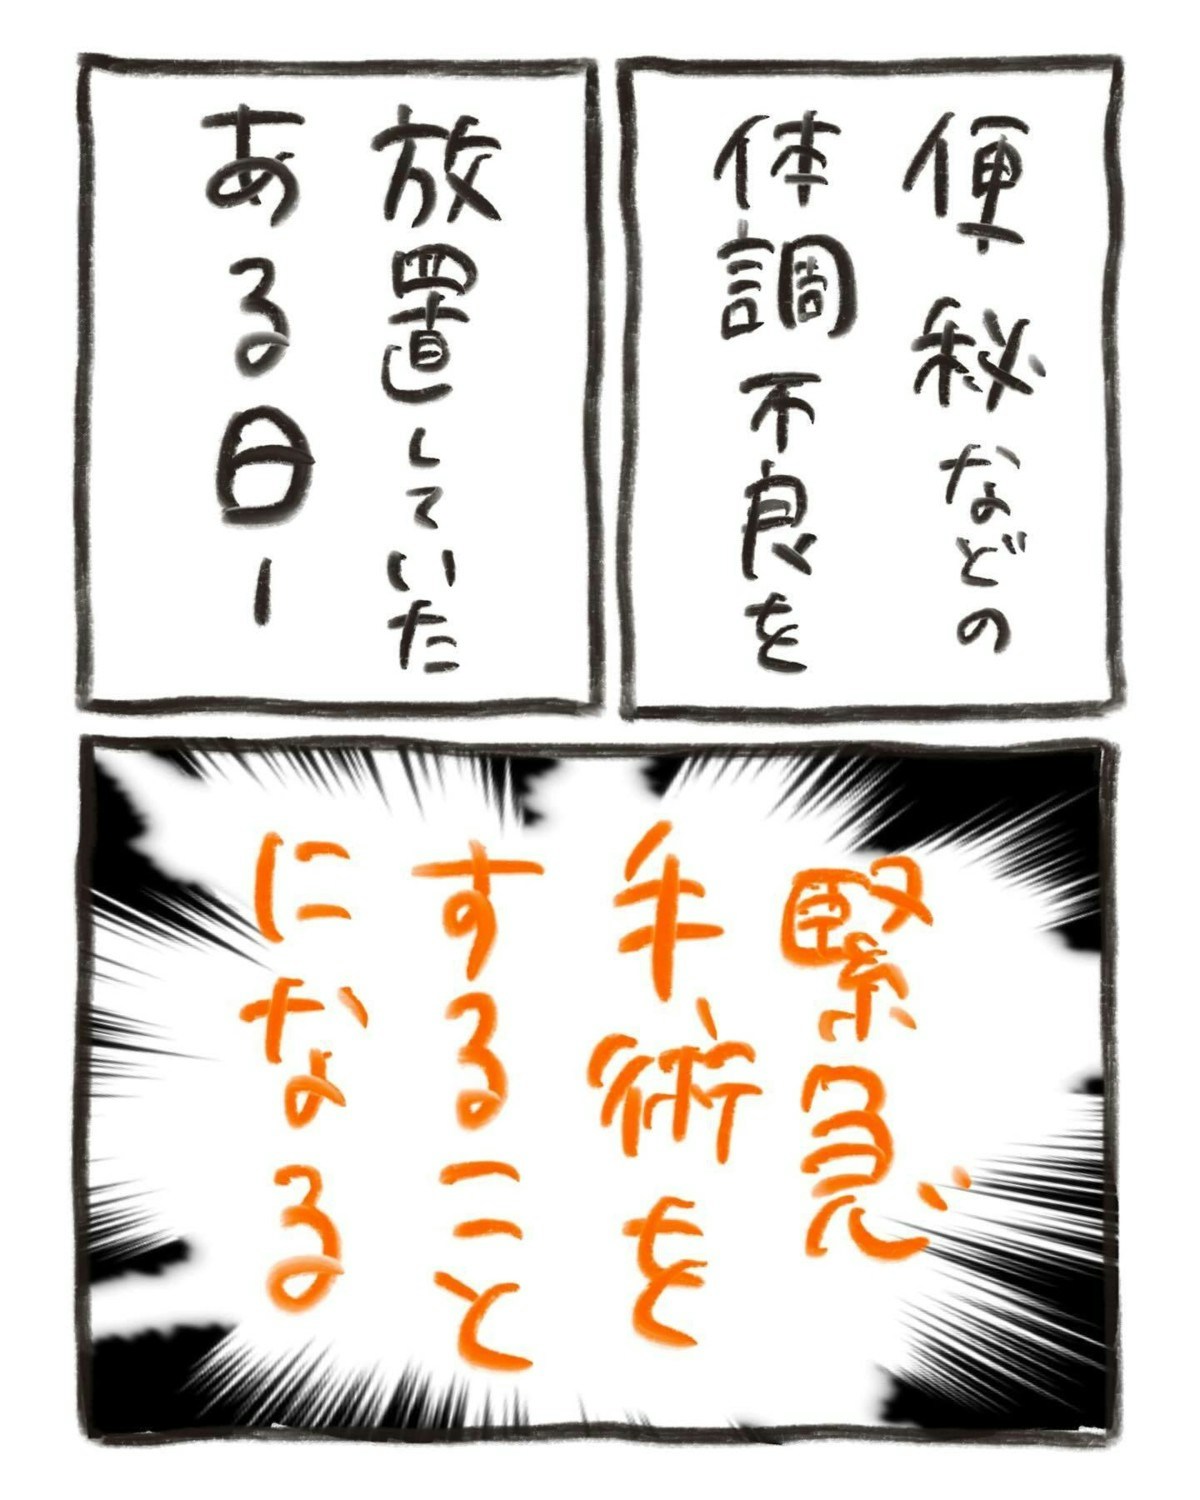 便秘などの
体調不良を
放置していた
ある日ー
緊急
手術を
すること
になる